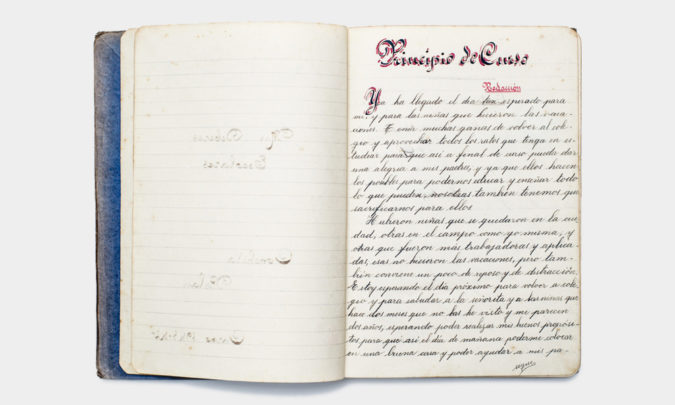 Principio de Curso
Redacción
Ya ha llegado el día tan esperado para
mi, y para las niñas que hicieron las vaca-
ciones. Tenía muchas ganas de volver al cole-
gio y aprovechar todos los ratos que tenga en es-
tudiar para que así a final de curso pueda dar
una alegria a mis padres, y ya que ellos hacen
los posibles para podernos educar y enseñar todo
lo que pueden, nosotras también tenemos que
sacrificarnos para ellos.
Hubieron niñas que se quedaron en la ciu-
dad, otras en el campo como yo misma, y
otras que fueron más trabajadoras y aplica-
das, esas no hicieron las vacaciones, pero tam-
bién conviene un poco de reposo y de distracción.
Estoy esperando el día próximo para volver a cole-
gio y para saludar a la señorita y a las niñas que
hace dos meses que no las he visto y me parecen
dos años, esperando poder realizar mis buenos propósi-
tos para que así el día de mañana poderme colocar
en una buena casa y poder ayudar a mis pa-
sigue
Mis Deberes
Escolares
Curso